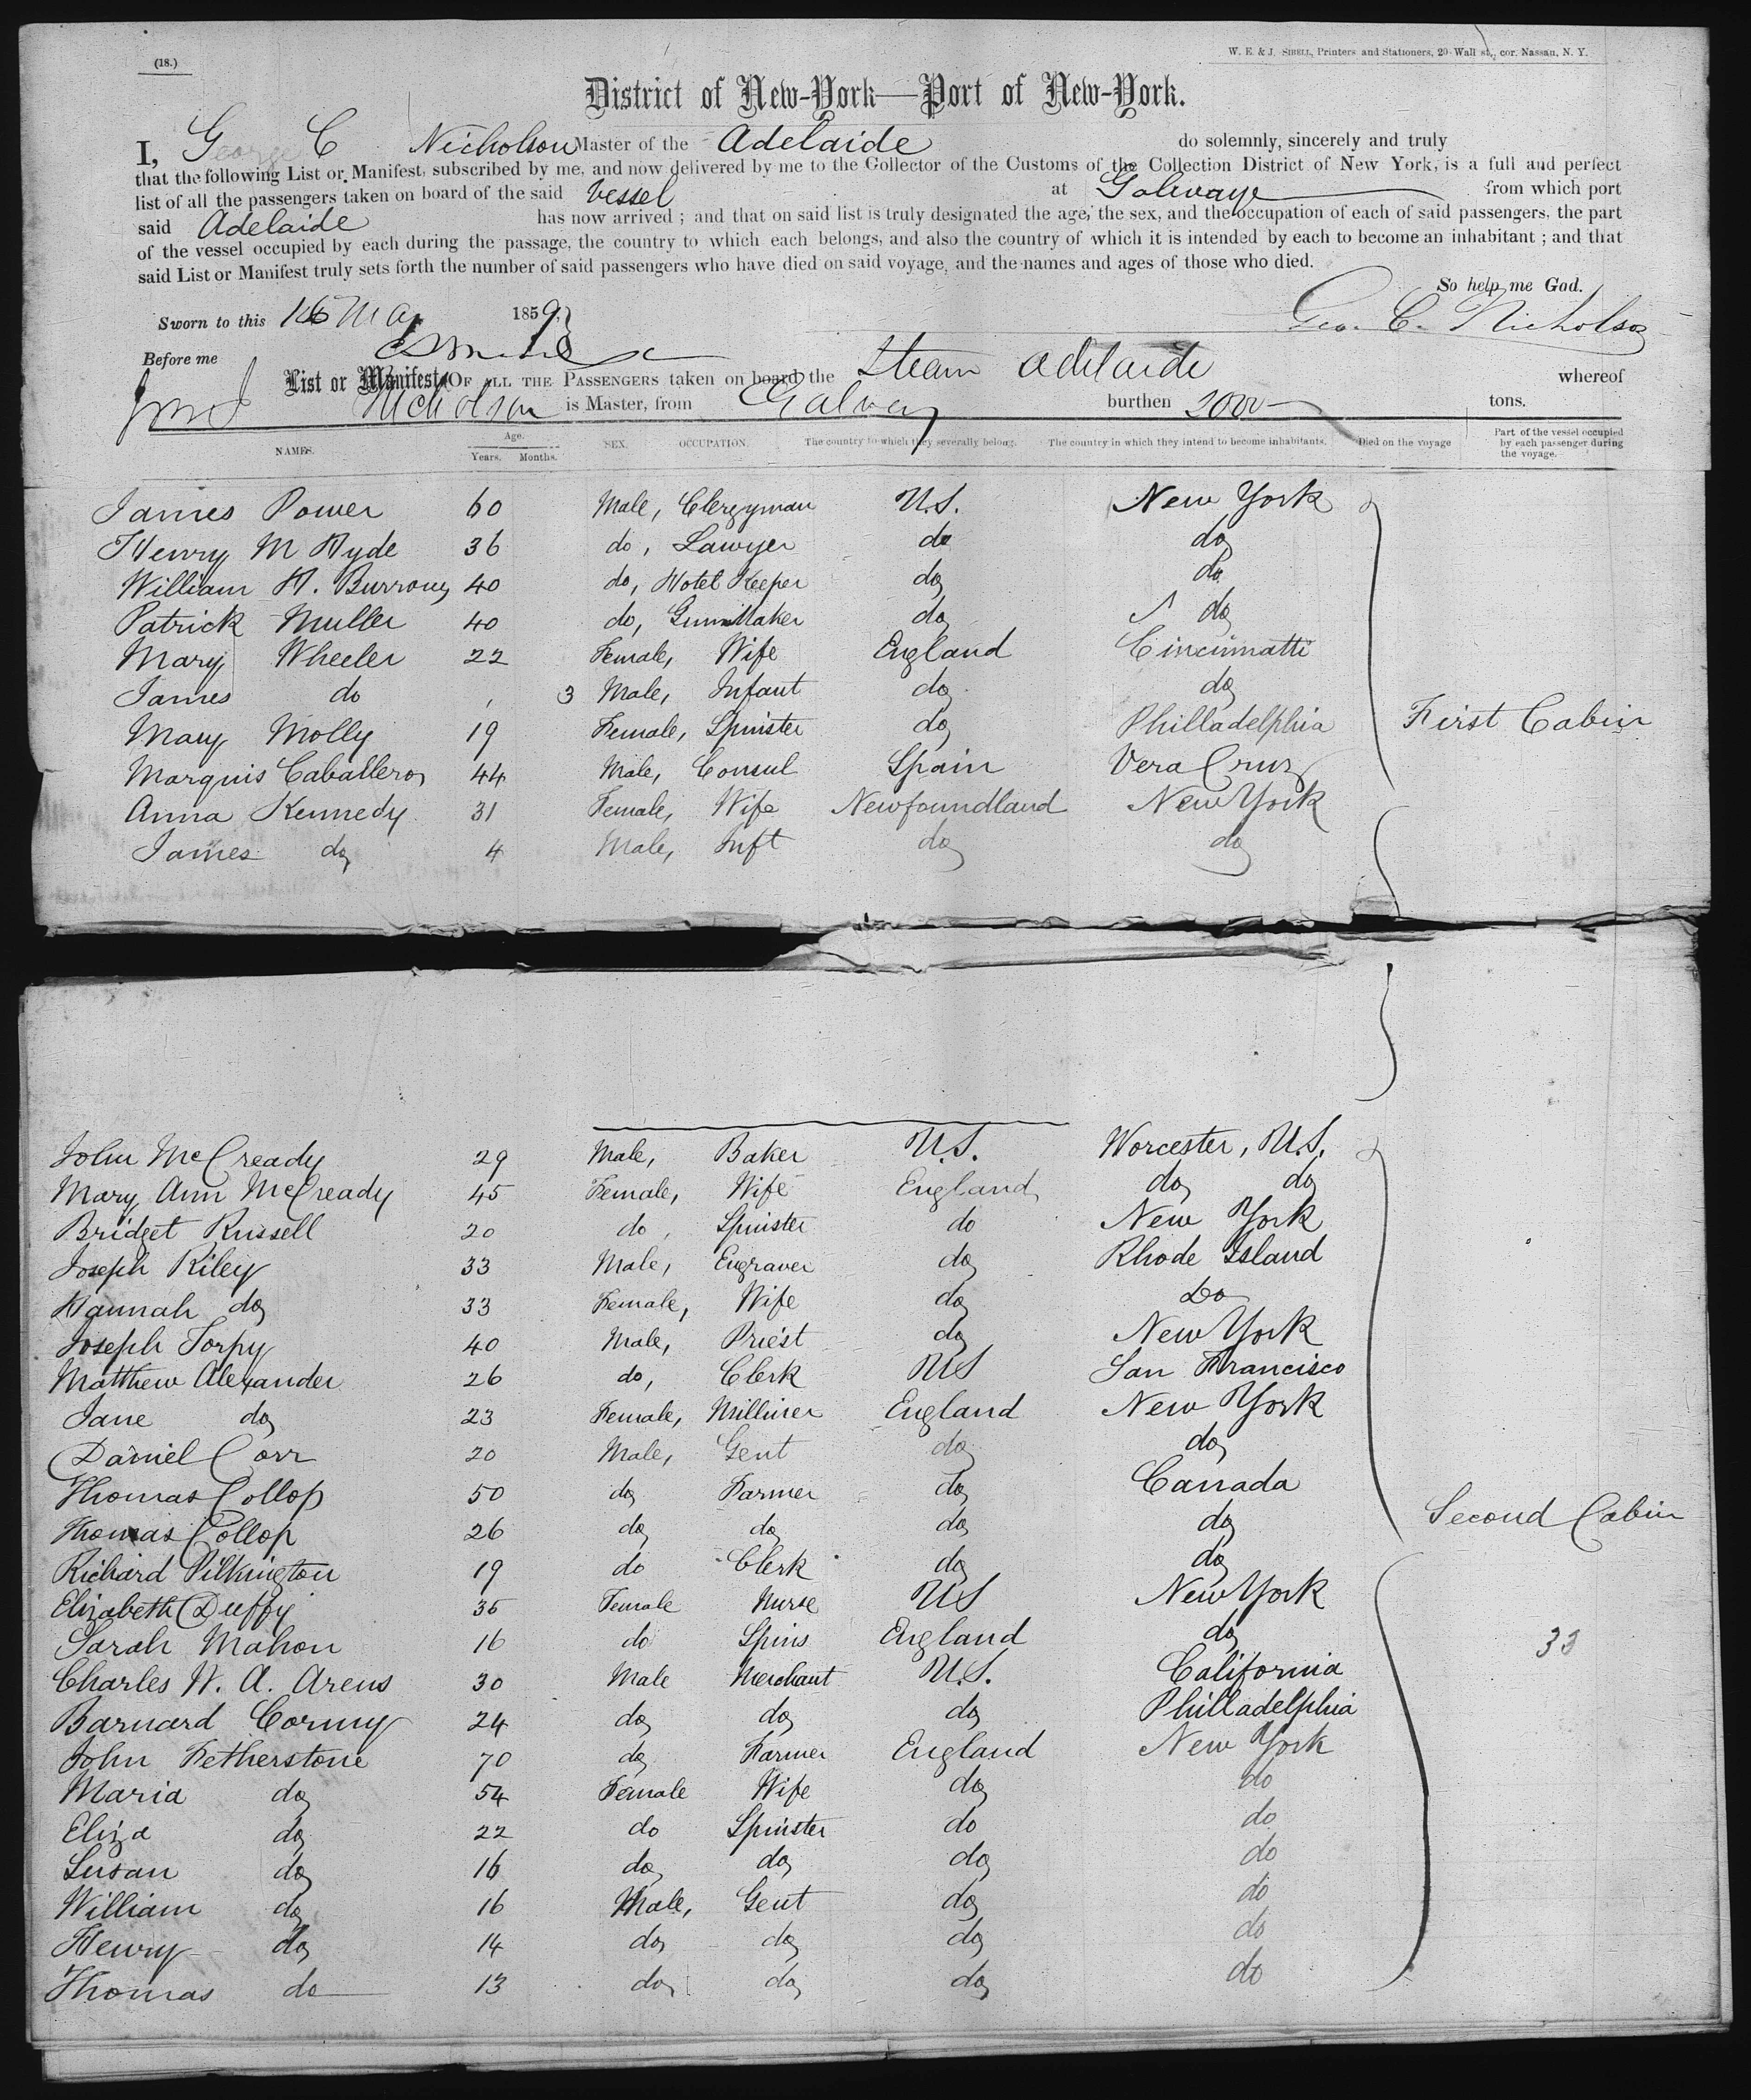 (18.)
W. E. & J. SIBELL, Printers and Stationers, 20 Wall st., cor. Nassau, N. Y.
District of New-York—Port of New-York.
I, George C Nicholson Master of the Adelaide do solemnly, sincerely and truly
that the following List or Manifest, subscribed by me, and now delivered by me to the Collector of the Customs of the Collection District of New York, is a full and perfect
list of all the passengers taken on board of the said Vessel at Galwaye from which port
said Adelaide has now arrived; and that on said list is truly designated the age, the sex, and the occupation of each of said passengers, the part
of the vessel occupied by each during the passage, the country to which each belongs, and also the country of which it is intended by each to become an inhabitant; and that
said List or Manifest truly sets forth the number of said passengers who have died on said voyage, and the names and ages of those who died.
So help me God.
Sworn to this 16 May 1859,
Geo. C. Nicholson
Before me
List or Manifest OF ALL THE PASSENGERS taken on board the Steam Adelaide whereof
Nicholson is Master, from Galway burthen 3000 tons.
NAMES. Age. Years. Months. SEX. OCCUPATION. The country to which they severally belong. The country in which they intend to become inhabitants. Died on the voyage Part of the vessel occupied by each passenger during the voyage.
James Power 60 Male, Clergyman U.S. New York
Henry M Hyde 36 do, Lawyer do do
William H. Burrows 40 do, Hotel Keeper do do
Patrick Muller 40 do, GunnMaker do do
Mary Wheeler 22 Female, Wife England Cincinnatti
James do 3 Male, Infant do do
Mary Molly 19 Female, Spinster do Philladelphia First Cabin
Marquis Caballeros 44 Male, Consul Spain Vera Cruz
Anna Kennedy 31 Female, Wife Newfoundland New York
James do 4 Male, Inft do do
John McCready 29 Male, Baker U.S. Worcester, U.S.
Mary Ann McCready 45 Female, Wife England do do
Bridget Russell 20 do, Spinster do New York
Joseph Riley 33 Male, Engraver do Rhode Island
Hannah do 33 Female, Wife do Do
Joseph Torpy 40 Male, Priest do New York
Matthew Alexander 26 do, Clerk US San Francisco
Jane do 23 Female, Milliner England New York
Daniel Corr 20 Male, Gent do do
Thomas Collop 50 do Farmer do Canada
Thomas Collop 26 do do do do Second Cabin
Richard Pilkington 19 do Clerk do do
Elizabeth Duffy 35 Female Nurse US New York
Sarah Mahon 16 do Spins England do 33
Charles W. A. Arens 30 Male Merchant U.S. California
Barnard Cormy 24 do do do Philladelphia
John Fetherstone 70 do Farmer England New York
Maria do 54 Female Wife do do
Eliza do 22 do Spinster do do
Susan do 16 do do do do
William do 16 Male, Gent do do
Henry do 14 do do do do
Thomas do 13 do do do do